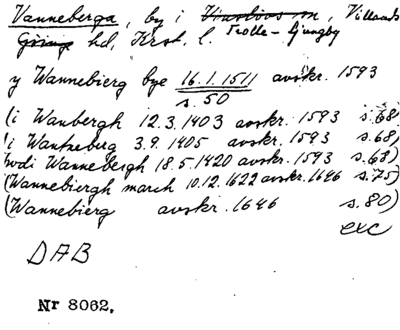 Vanneberga, by i Vinslövs sn, Villands
Göinge hd, Krst. l. Trolle-Ljungby
y Wannebierg bye 16.1.1511 avskr. 1593
s. 50
(i Wanbergh 12.3.1403 avskr. 1593 s. 68)
(i Wantneberg 3.9.1405 avskr. 1593 s. 68)
(udi Wannebergh 18.5.1420 avskr. 1593 s. 68)
(Wannebiergh march 10.12.1622 avskr. 1646 s. 75)
(Wannebierg avskr. 1646 s. 80)
exc
DAB
Nr 8062.